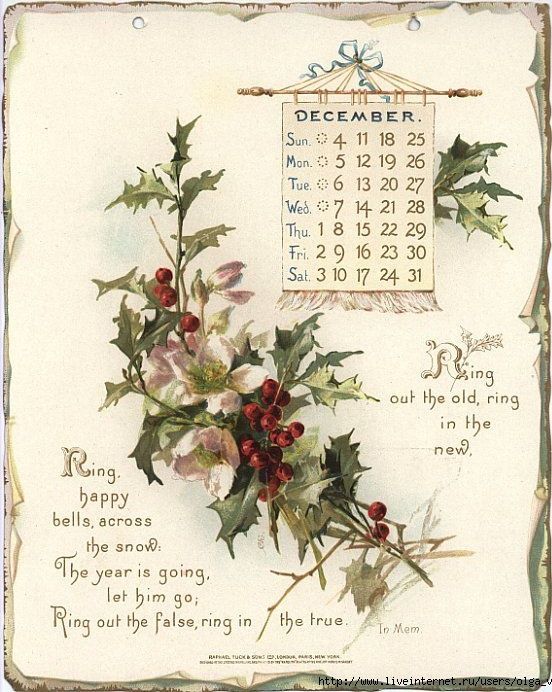 DECEMBER.
Sun. 4 11 18 25
Mon. 5 12 19 26
Tue. 6 13 20 27
Wed. 7 14 21 28
Thu. 1 8 15 22 29
Fri. 2 9 16 23 30
Sat. 3 10 17 24 31
Ring
out the old, ring
in the
new,
Ring,
happy
bells, across
the snow:
The year is going,
let him go;
Ring out the false, ring in the true.
In Mem.
RAPHAEL TUCK & SONS LTD, LONDON, PARIS, NEW YORK.
http://www.liveinternet.ru/users/olga_v